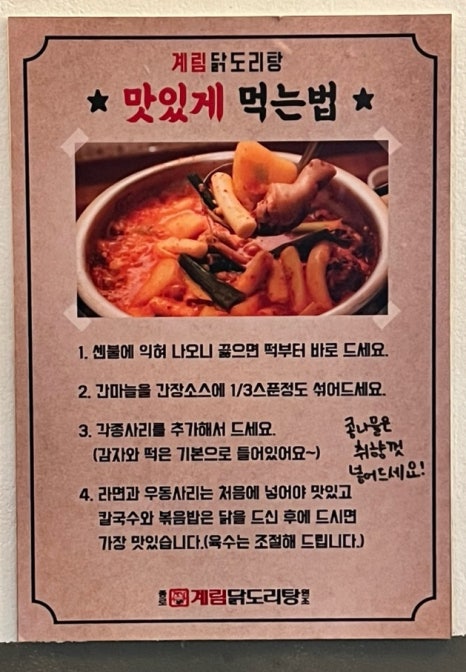 계림닭도리탕
★ 맛있게 먹는법 ★
1. 센불에 익혀 나오니 끓으면 떡부터 바로 드세요.
2. 간마늘을 간장소스에 1/3스푼정도 섞어드세요.
3. 각종사리를 추가해서 드세요.
(감자와 떡은 기본으로 들어있어요~)
콩나물은
취향껏
넣어드세요!
4. 라면과 우동사리는 처음에 넣어야 맛있고
칼국수와 볶음밥은 닭을 드신 후에 드시면
가장 맛있습니다.(육수는 조절해 드립니다.)
종로 계림닭도리탕 원조